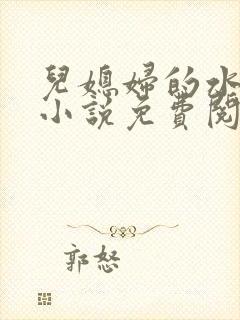 兒媳婦的水
小說免費閱
郭怒